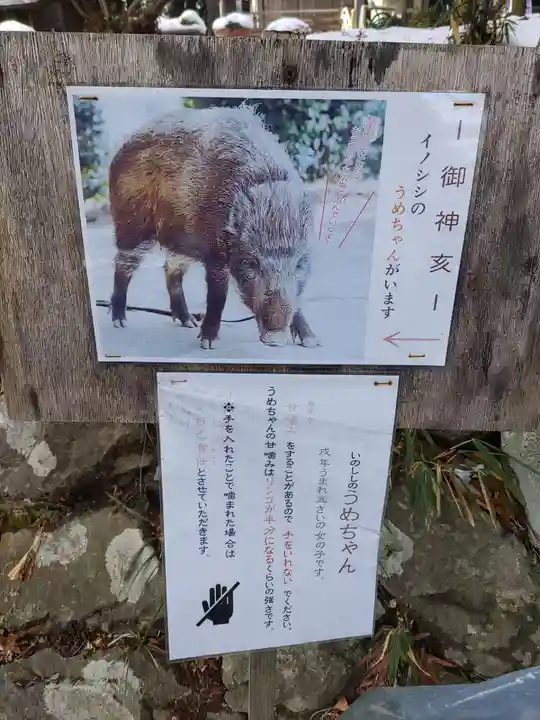 ー御神亥ー
イノシシの
うめちゃんがいます
いのししのうめちゃん
戌年うまれ五さいの女の子です。
甘噛みをすることがあるので 手をいれないでください。
うめちゃんの甘噛みはリンゴが半分になるくらいの強さです。
※手を入れたことで噛まれた場合は
とさせていただきます。